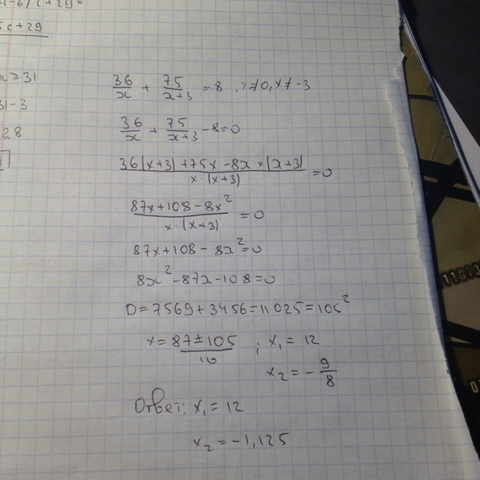 5c+29
x≥31
31-3
28
36/x + 75/(x+3) = 8, x≠0, x≠-3
36/x + 75/(x+3) - 8 = 0
(36(x+3)+75x-8x×(x+3))/(x·(x+3)) = 0
(87x+108-8x²)/(x·(x+3)) = 0
87x+108-8x²=0
8x²-87x-108=0
D=7569+3456=11025=105²
x=(87±105)/10 ; x₁=12
x₂=-9/8
Ответ: x₁=12
x₂=-1,125